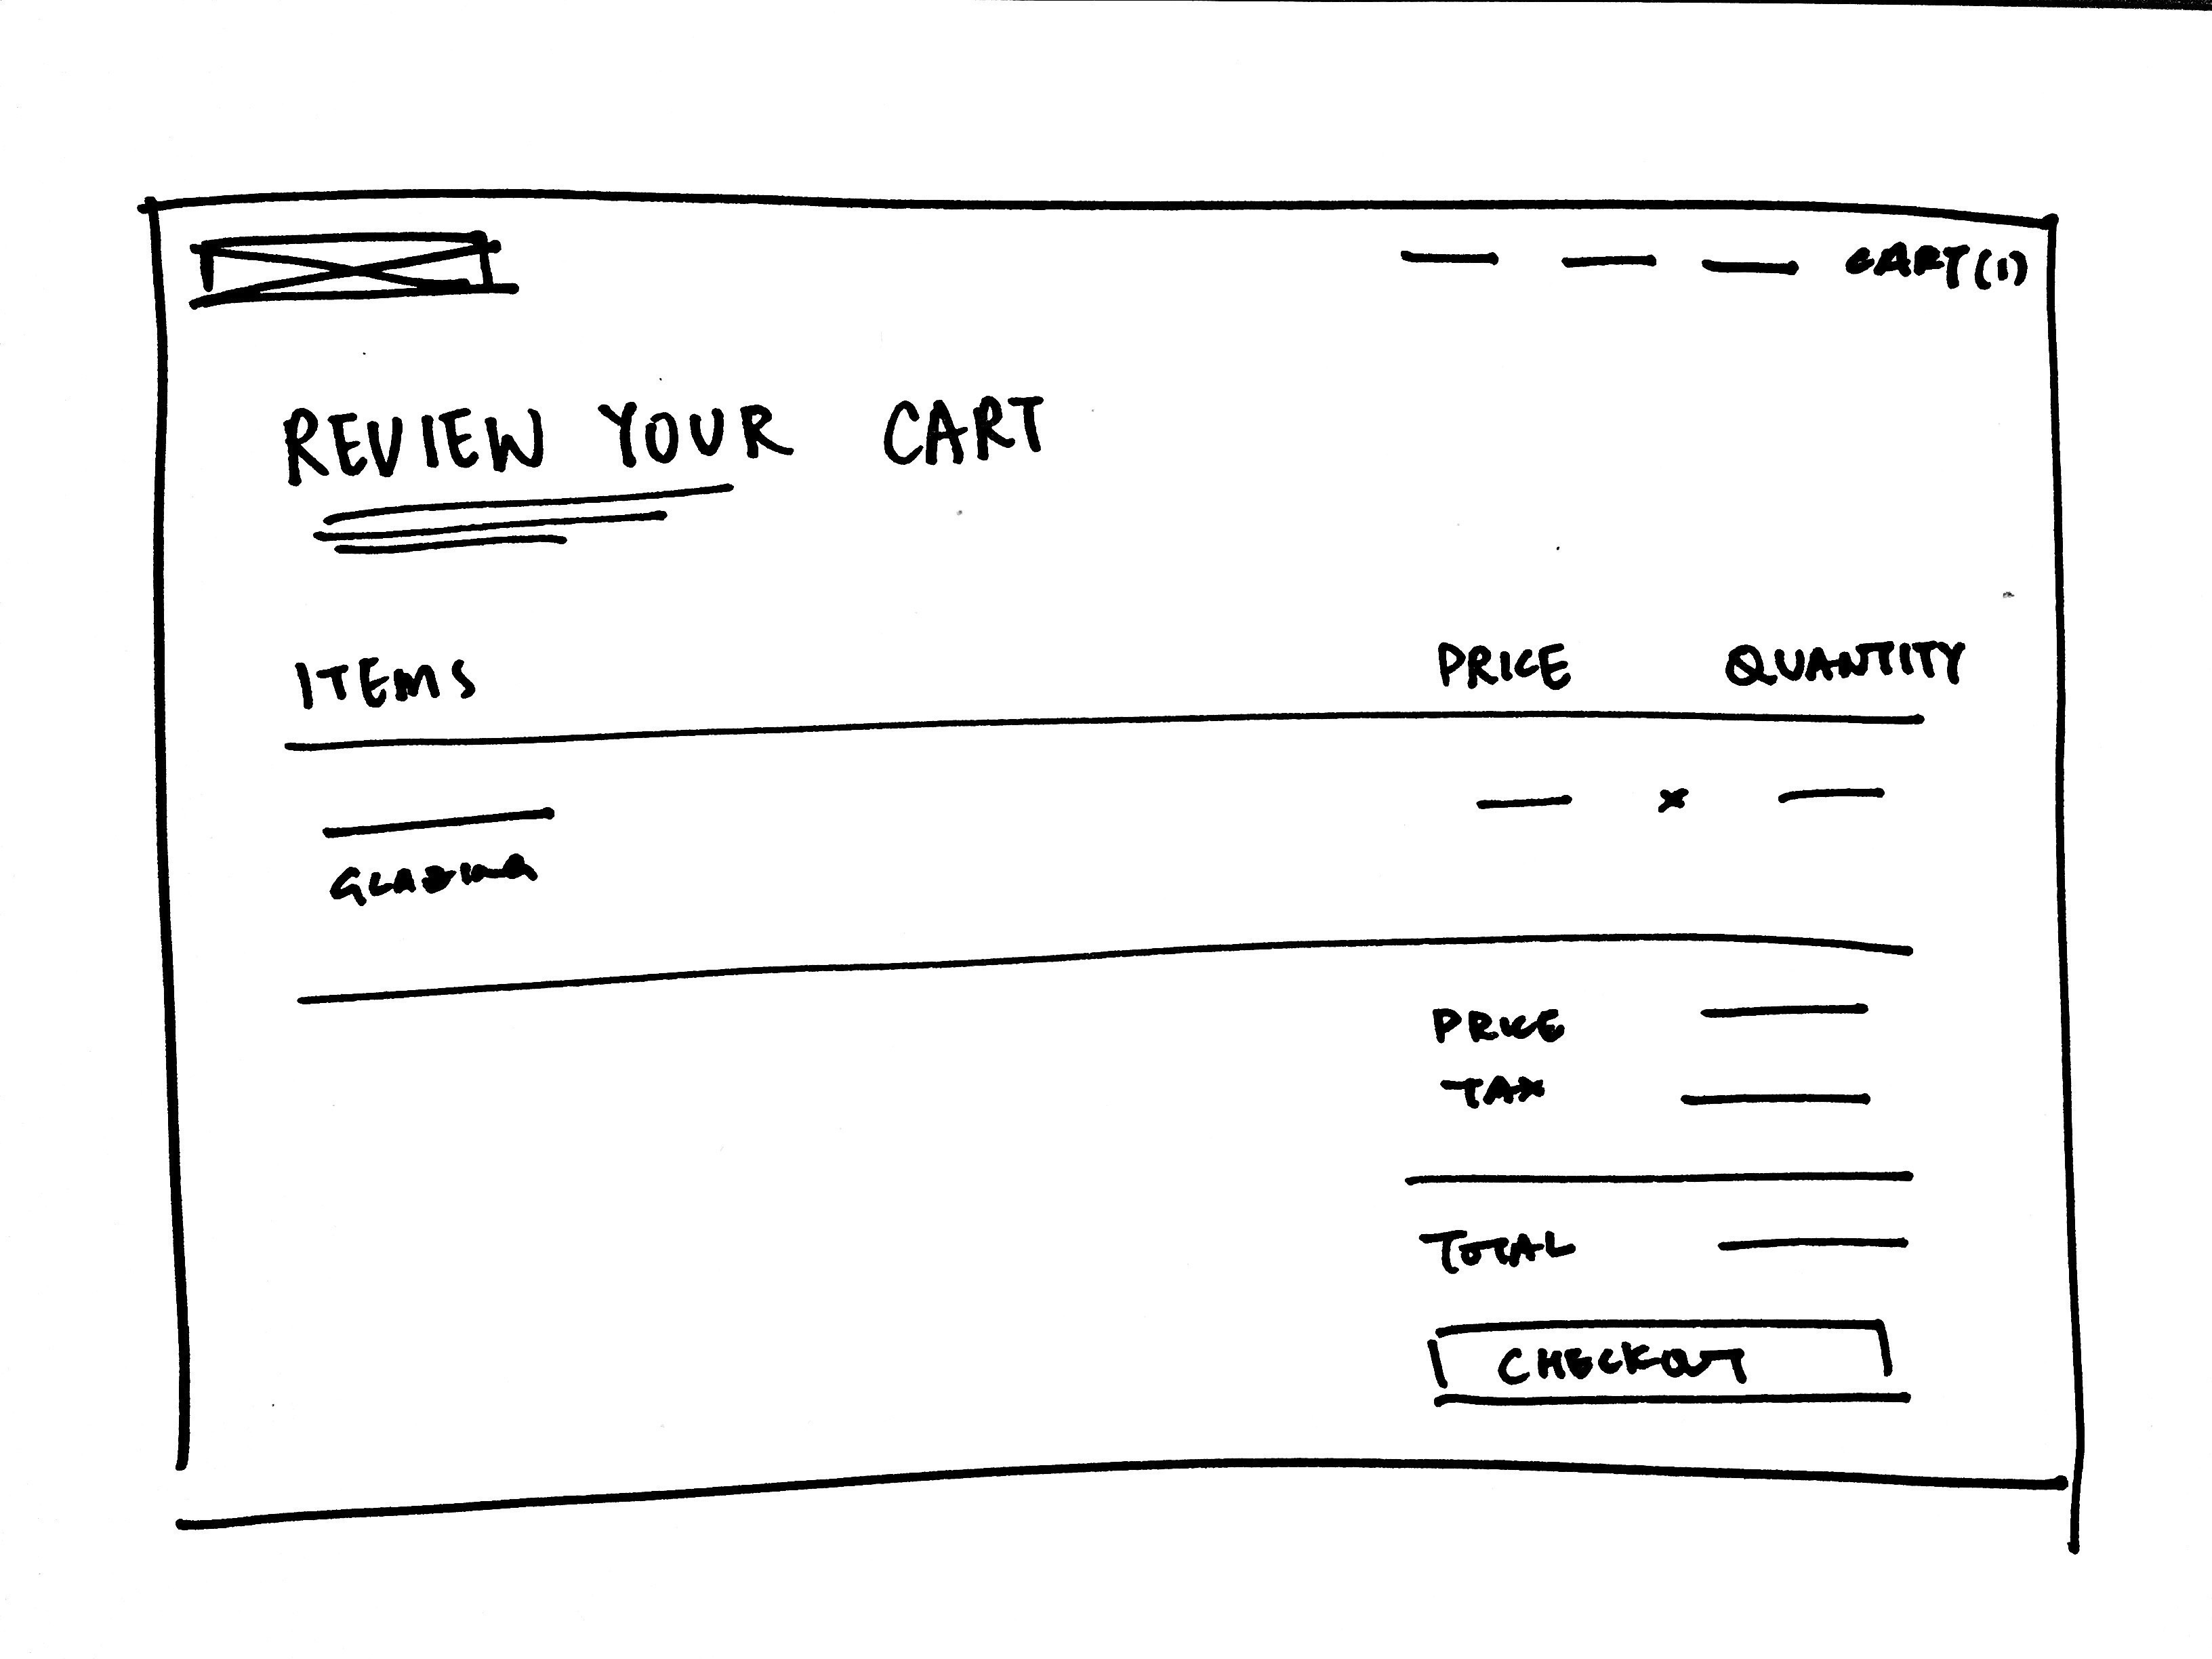 CART(1)
REVIEW YOUR CART
ITEMS PRICE QUANTITY
x
GLAZING
PRICE
TAX
TOTAL
CHECKOUT